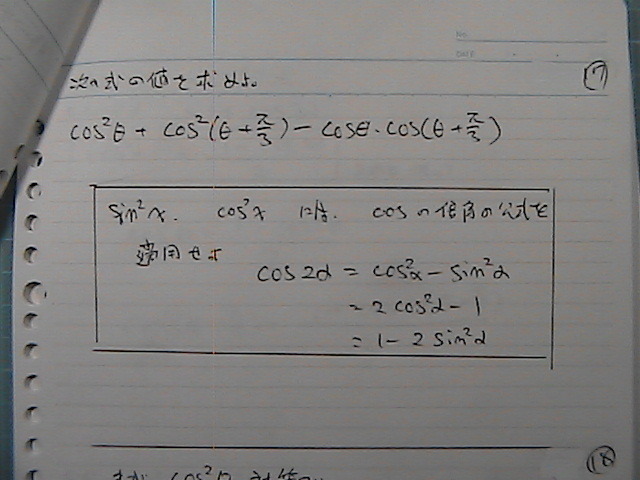 No.
DATE
次の式の値を求めよ。 ⑰
cos²θ + cos²(θ + π/3) − cosθ・cos(θ + π/3)
sin²x. cos²x には. cosの倍角の公式を
適用せよ
cos2α = cos²α − sin²α
= 2cos²α − 1
= 1 − 2sin²α
⑱
まず cos²θ